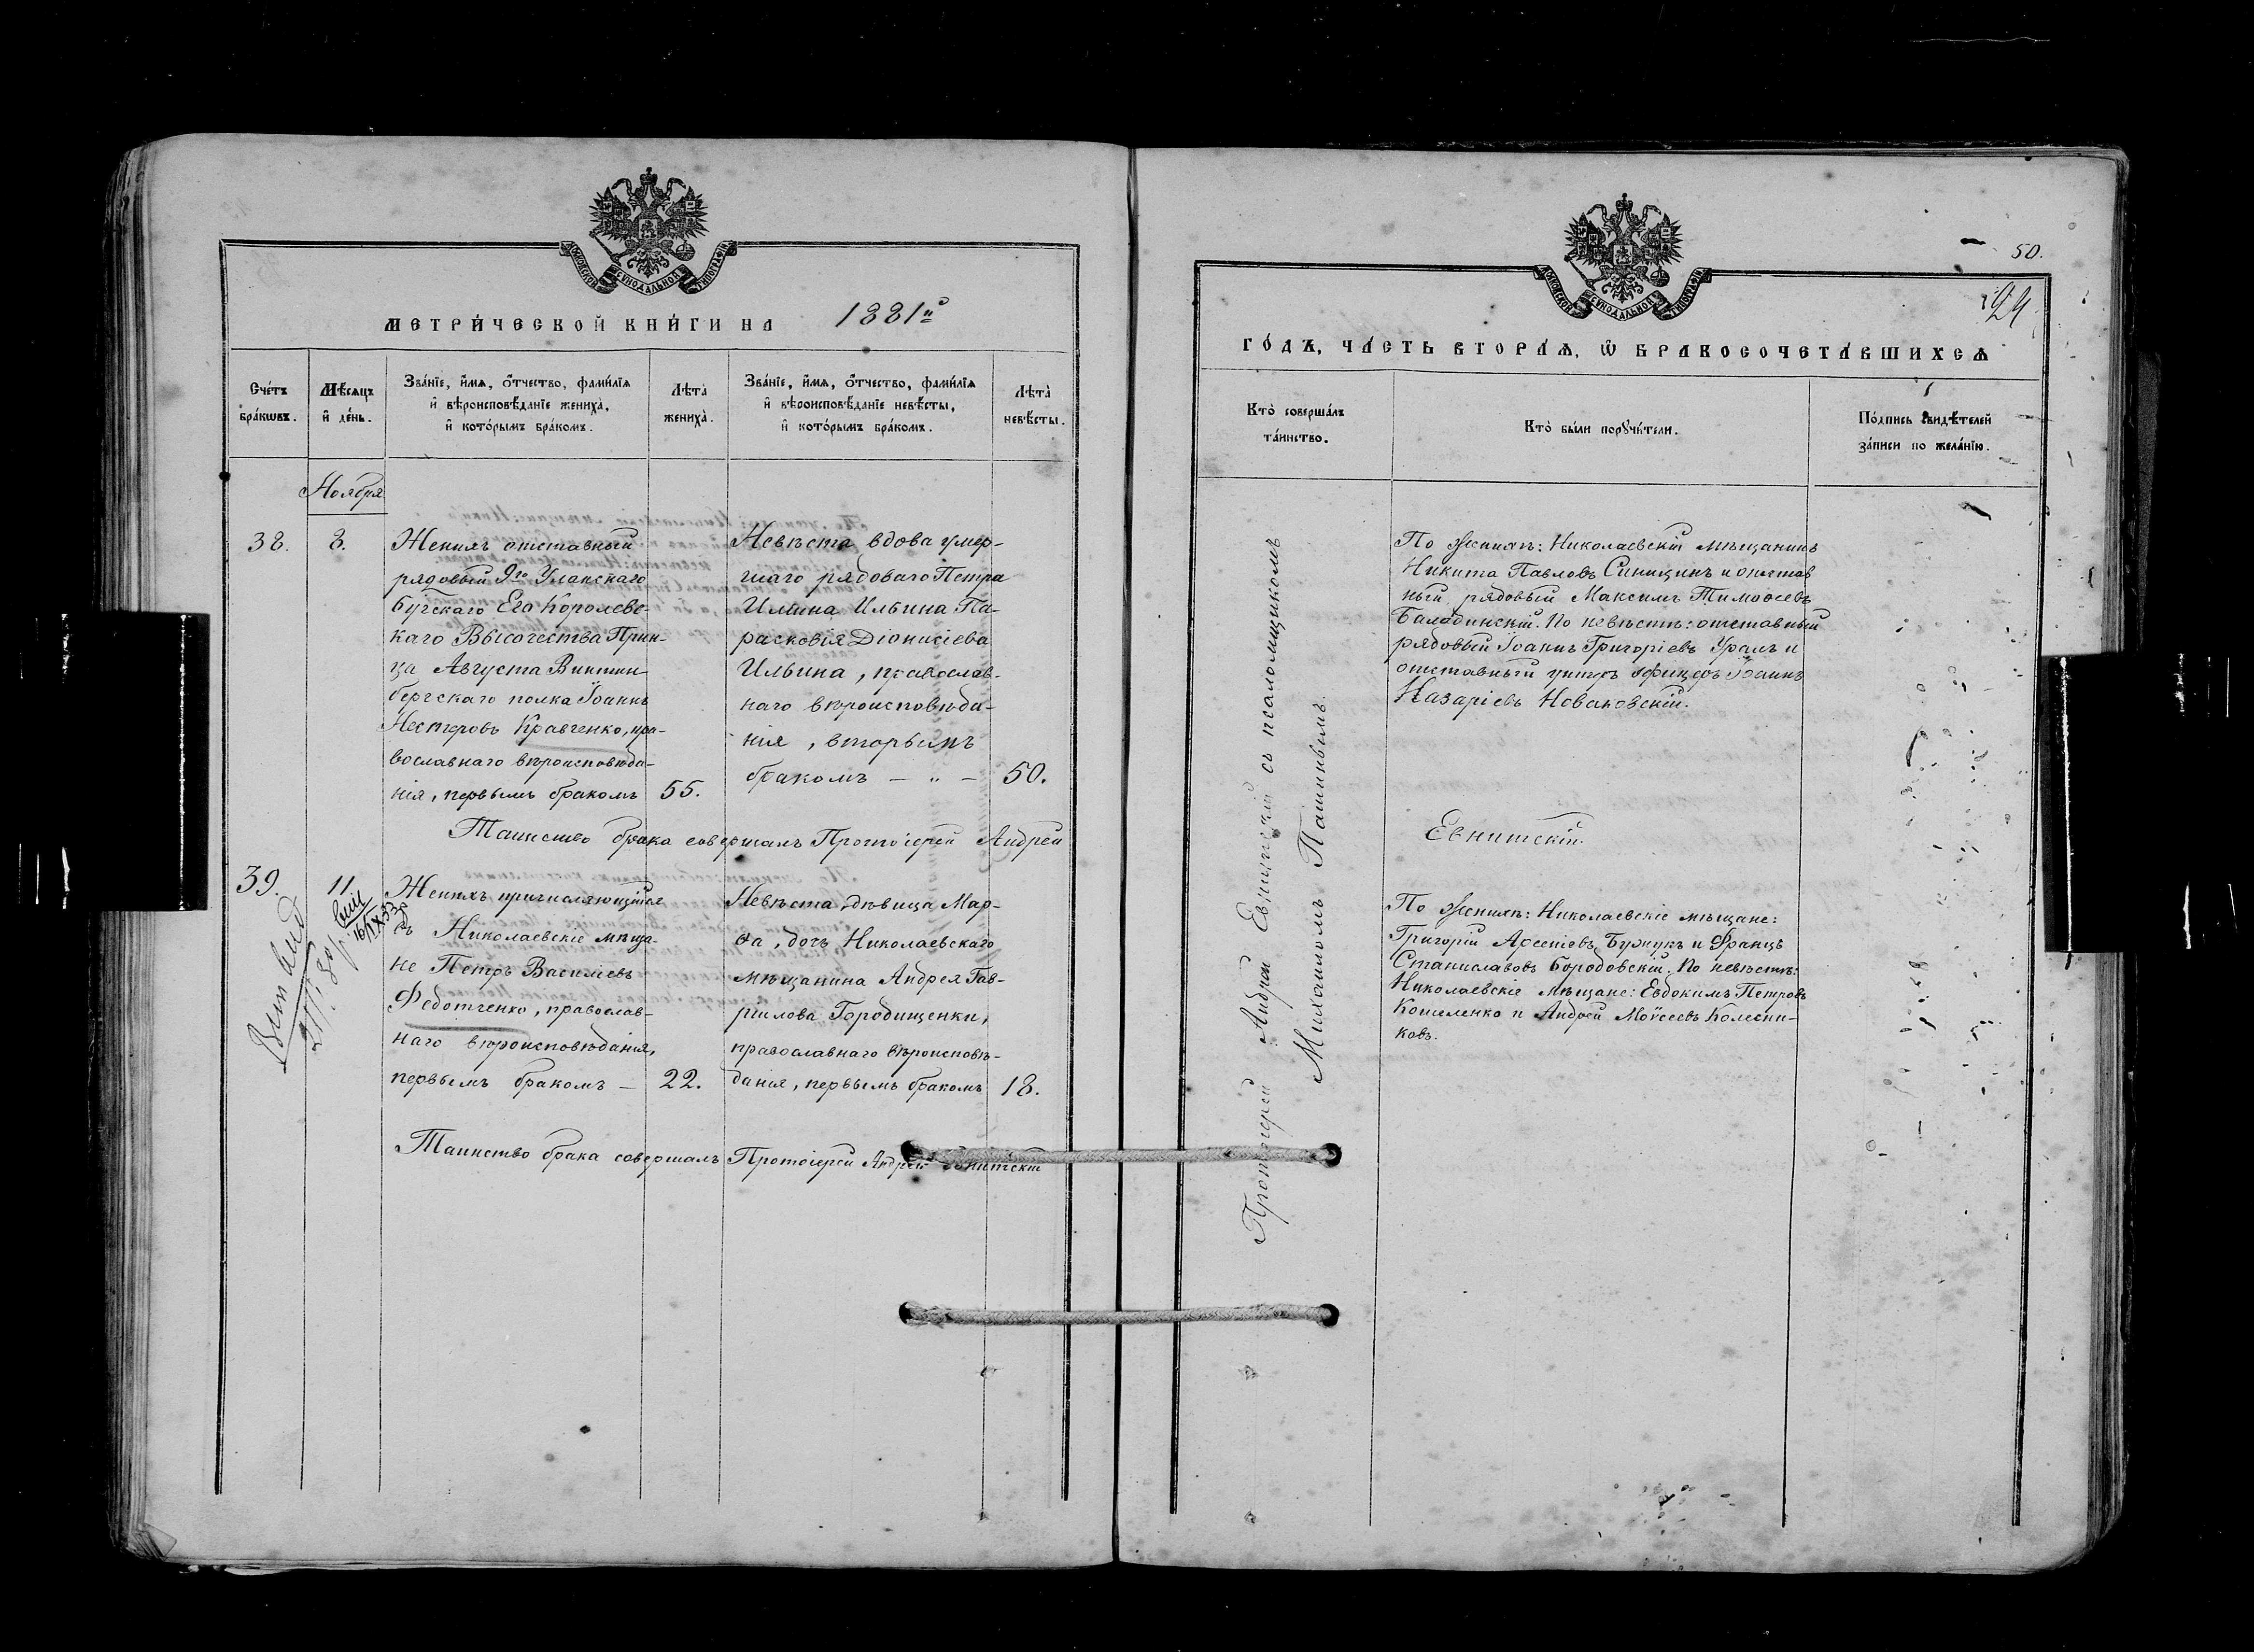 МОСКОВСКОЙ СѴНОДАЛЬНОЙ ТИПОГРАФІИ
МЕТРИ́ЧЕСКОЙ КНИ́ГИ НА 1881й
Сче́тъ бра́кωвъ.
Мѣ́сяцъ и҆ де́нь.
Зва́нїе, и҆́мѧ, ѻ҆́тчество, фами́лїѧ
и҆ вѣроисповѣ́данїе жениха̀,
и҆ кото́рымъ бра́комъ.
Лѣта̀
жениха̀.
Зва́нїе, и҆́мѧ, ѻ҆́тчество, фами́лїѧ
и҆ вѣроисповѣ́данїе невѣ́сты,
и҆ кото́рымъ бра́комъ.
Лѣта̀
невѣ́сты.
Ноября
38.
8.
Женихъ отставный
рядовый 9го Уланскаго
Бугскаго Его Королевс-
каго Высочества Прин-
ца Августа Виртем
бергскаго полка Іоаннъ
Нестеровъ Кравченко, пра-
вославнаго вѣроисповѣда-
нія, первымъ бракомъ
55.
Невѣста вдова умер-
шаго рядоваго Петра
Ильина Ильина Па-
расковія Діонисіева
Ильина, православ-
наго вѣроисповѣда-
нія, вторымъ
бракомъ — „ —
50.
Таинство брака совершалъ Протоіерей Андрей
39.
11.
16/IX 33
Женихъ причисляющійся
въ Николаевскіе мѣща-
не Петръ Василіевъ
Федотченко, православ-
наго вѣроисповѣданія,
первымъ бракомъ —
22.
Невѣста, дѣвица Мар-
ѳа, дочь Николаевскаго
мѣщанина Андрея Гав-
рилова Городищенки,
православнаго вѣроисповѣ-
данія, первымъ бракомъ
18.
Таинство брака совершалъ Протоіерей Андрей Евнитскій
МОСКОВСКОЙ СѴНОДАЛЬНОЙ ТИПОГРАФІИ
50.
29
ГО́ДЪ, ЧА́СТЬ ВТОРА́Ѧ, Ѽ БРАКОСОЧЕТА́ВШИХСѦ
Кто̀ соверша́лъ
та́инство.
Кто̀ бы́ли порꙋчи́тели.
По́дпись свидѣ́телей
за́писи по жела́нїю.
Протоіерей Андрей Евнитскій съ псаломщикомъ
Михаиломъ Пашинымъ.
По женихѣ: Николаевскій мѣщанинъ
Никита Павловъ Синицинъ и отстав
ный рядовый Максимъ Тимоѳеевъ
Баладинскій. По невѣстѣ: отставный
рядовый Іоаннъ Григоріевъ Уралъ и
отставный унтеръ офицеръ Іоаннъ
Назаріевъ Новаковскій.
Евнитскій.
По женихѣ: Николаевскіе мѣщане:
Григорій Арсеніевъ Бунчукъ и Францъ
Станиславовъ Бородовскій. По невѣстѣ:
Николаевскіе мѣщане: Евдокимъ Петровъ
Кошеленко и Андрей Моѵсеевъ Колесни-
ковъ.